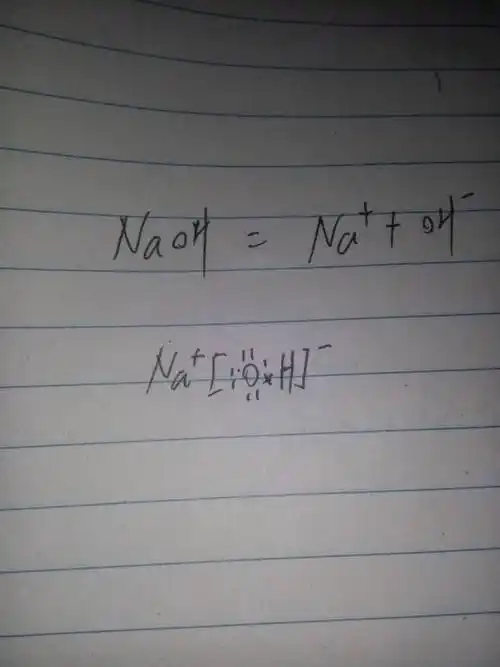 NaOH = Na⁺ + OH⁻
Na⁺[:Ö:H]⁻